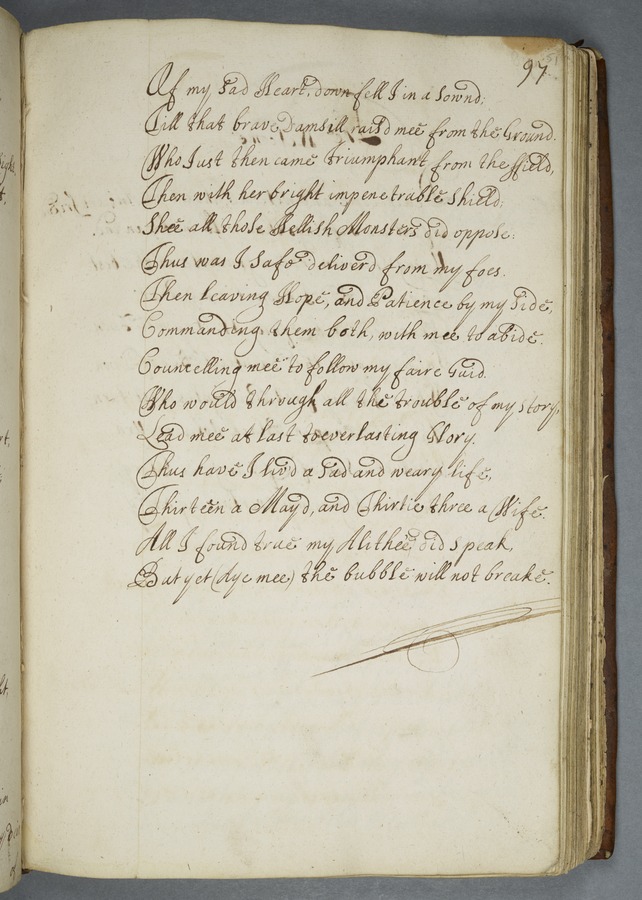 97
Of my sad Heart, down fell I in a sownd;
Till that brave Damsill rais'd mee from the Ground.
Who Just then came Triumphant from the ffield,
Then with her bright impenetrable shield;
Shee all those Hellish Monsters did oppose;
Thus was I safe deliverd from my foes.
Then leaving Hope, and Patience by my side,
Commanding them both, with mee to abide.
Councelling mee to follow my faire Guid.
Who would through all the trouble of my story,
Lead mee at last to everlasting Glory.
Thus have I liv'd a sad and weary life,
Thirteen a Mayd, and Thirtie three a Wife.
All I found true my Alithee did speak,
But yet (Aye mee) the bubble will not breake.